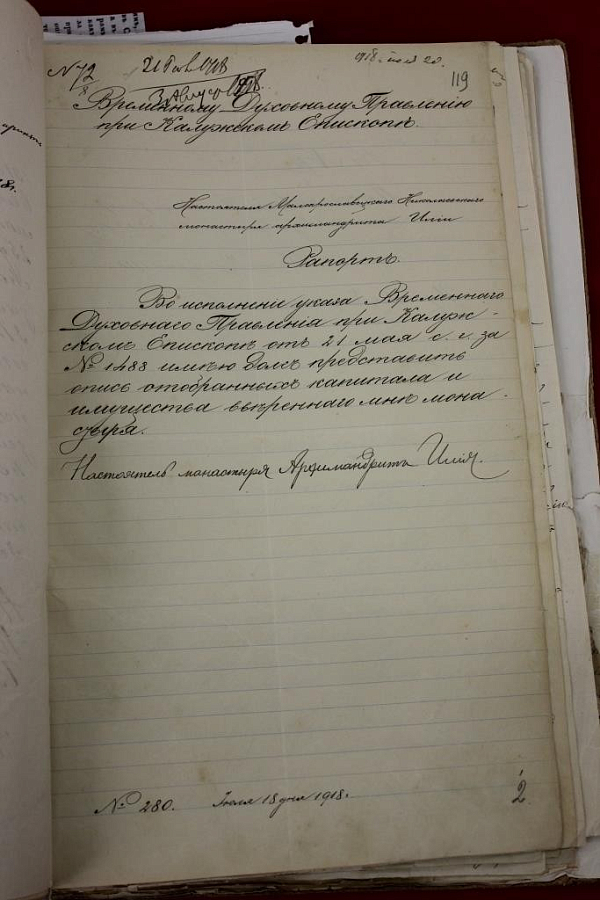 1918 июля 20.
119
3 Август 1918.
Временному Духовному Правленію
при Калужскомъ Епископѣ.
Настоятеля Малоярославецкаго Николаевскаго
монастыря архимандрита Иліи
Рапортъ.
Во исполненіе указа Временнаго
Духовнаго Правленія при Калуж-
скомъ Епископѣ отъ 21 мая с. г. за
№ 1488 имѣю долгъ представить
опись отобранныхъ капитала и
имущества ввѣреннаго мнѣ мона-
стыря.
Настоятель монастыря Архимандритъ Илія.
№ 280. Іюля 18 дня 1918.
2